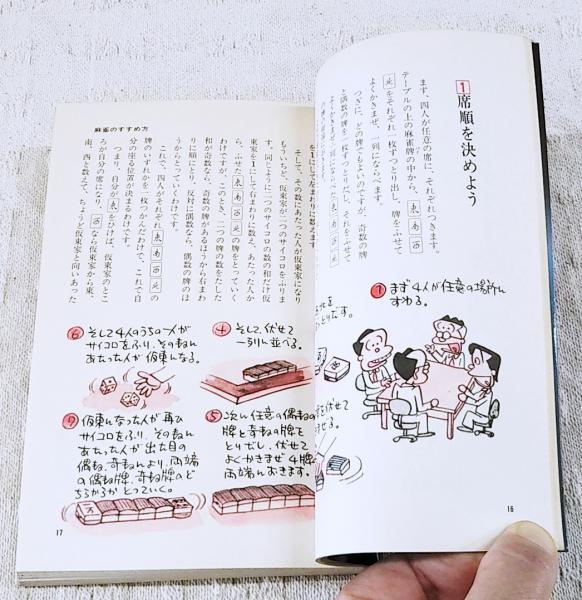 1 席順を決めよう
まず、四人が任意の席に、それぞれつきます。
テーブルの上の麻雀牌の中から、東 南 西
北をそれぞれ一枚ずつとり出し、牌をふせて
よくかきまぜ、一列にならべます。
つぎに、どの牌でもよいのですが、奇数の牌
と偶数の牌を一枚ずつとりだし、それをふせて
① まず4人が任意の場所に
すわる。
16
麻雀のすすめ方
を1にして左まわりに数えます
そして、その数にあたった人が仮東家になり
もういちど、仮東家が二つのサイコロをふりま
す。同じように二つのサイコロの数の和だけ仮
東家を1にして右まわりに数え、あたった人か
ら、ふせた東 南 西 北の牌をとっていく
わけですが、このとき、二つの牌の数をたした
和が奇数なら、奇数の牌があるほうから右まわ
りに順にとり、反対に偶数なら、偶数の牌のほ
うからとっていくわけです。
これで、四人がそれぞれ東 南 西 北の
牌のいずれかを一枚つかんだわけで、これで自
分の座る位置が決まるわけです。
つまり、自分が東をひけば、仮東家のとこ
ろが自分の席になり、西なら仮東家から東、
南、西と数えて、ちょうど仮東家と向いあった
④ そして、伏せて
一列に並べる。
⑤ 次に任意の偶数の
牌と奇数の牌を
とりだし、伏せて
よくかきまぜ4牌の
両端におきます。
⑥ そして4人のうちの一人が
サイコロをふり、その数に
あたった人が仮東になる。
⑦ 仮東になった人が再び
サイコロをふり、その数に
あたった人が出た目の
偶数、奇数により、両端
の偶数牌、奇数牌のど
ちらかからとっていく。
17